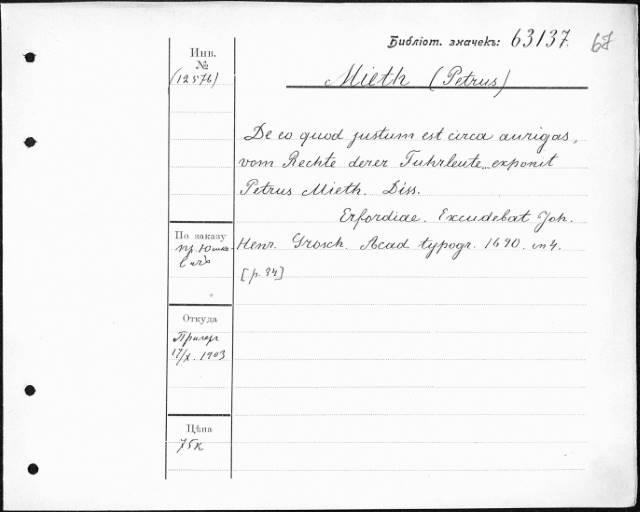 Библіот. значекъ: 63137. 67
Инв.
№
(12576)
Mieth (Petrus)
De eo quod justum est circa aurigas,
vom Rechte derer Fuhrleute... exponit
Petrus Mieth. Diss.
Erfordiae. Excudebat Joh.
Henr. Grosch. Acad typogr. 1690. in 4.
[p. 34]
По заказу
пр. Юшке-
вичъ
Откуда
17/X. 1903
Цѣна
75к